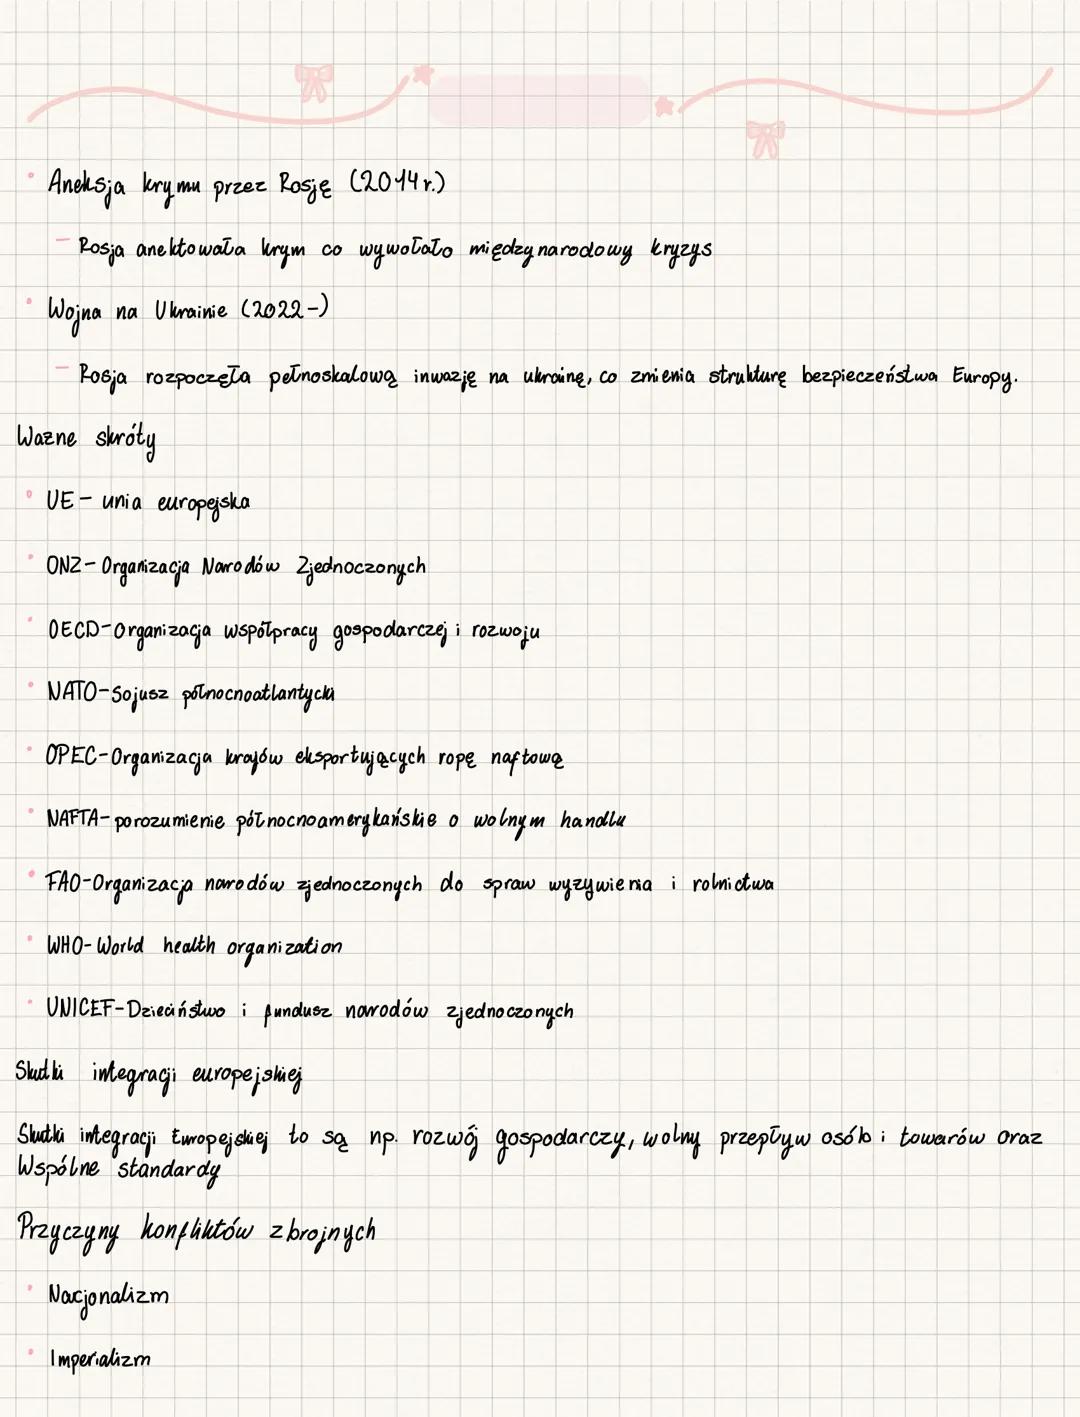 Aneksja krymu przez Rosję (2014r.)
- Rosja anektowała krym co wywołało międzynarodowy kryzys
Wojna na Ukrainie (2022-)
- Rosja rozpoczęła pełnoskalową inwazję na ukrainę, co zmienia strukturę bezpieczeństwa Europy.
Wazne skróty
UE - unia europejska
ONZ - Organizacja Narodów Zjednoczonych
OECD - Organizacja współpracy gospodarczej i rozwoju
NATO - Sojusz północnoatlantycki
OPEC - Organizacja krajów eksportujących ropę naftową
NAFTA - porozumienie północnoamerykańskie o wolnym handlu
FAO - Organizacja narodów zjednoczonych do spraw wyzywienia i rolnictwa
WHO - World health organization
UNICEF - Dzieciństwo i fundusz narodów zjednoczonych
Skutki integracji europejskiej
Skutki integracji Europejskiej to są np. rozwój gospodarczy, wolny przepływ osób i towarów oraz
Wspólne standardy
Przyczyny konfliktów zbrojnych
Nacjonalizm
Imperializm